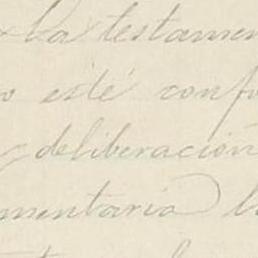 la testamen
o esté confo
deliberación
mentaria l